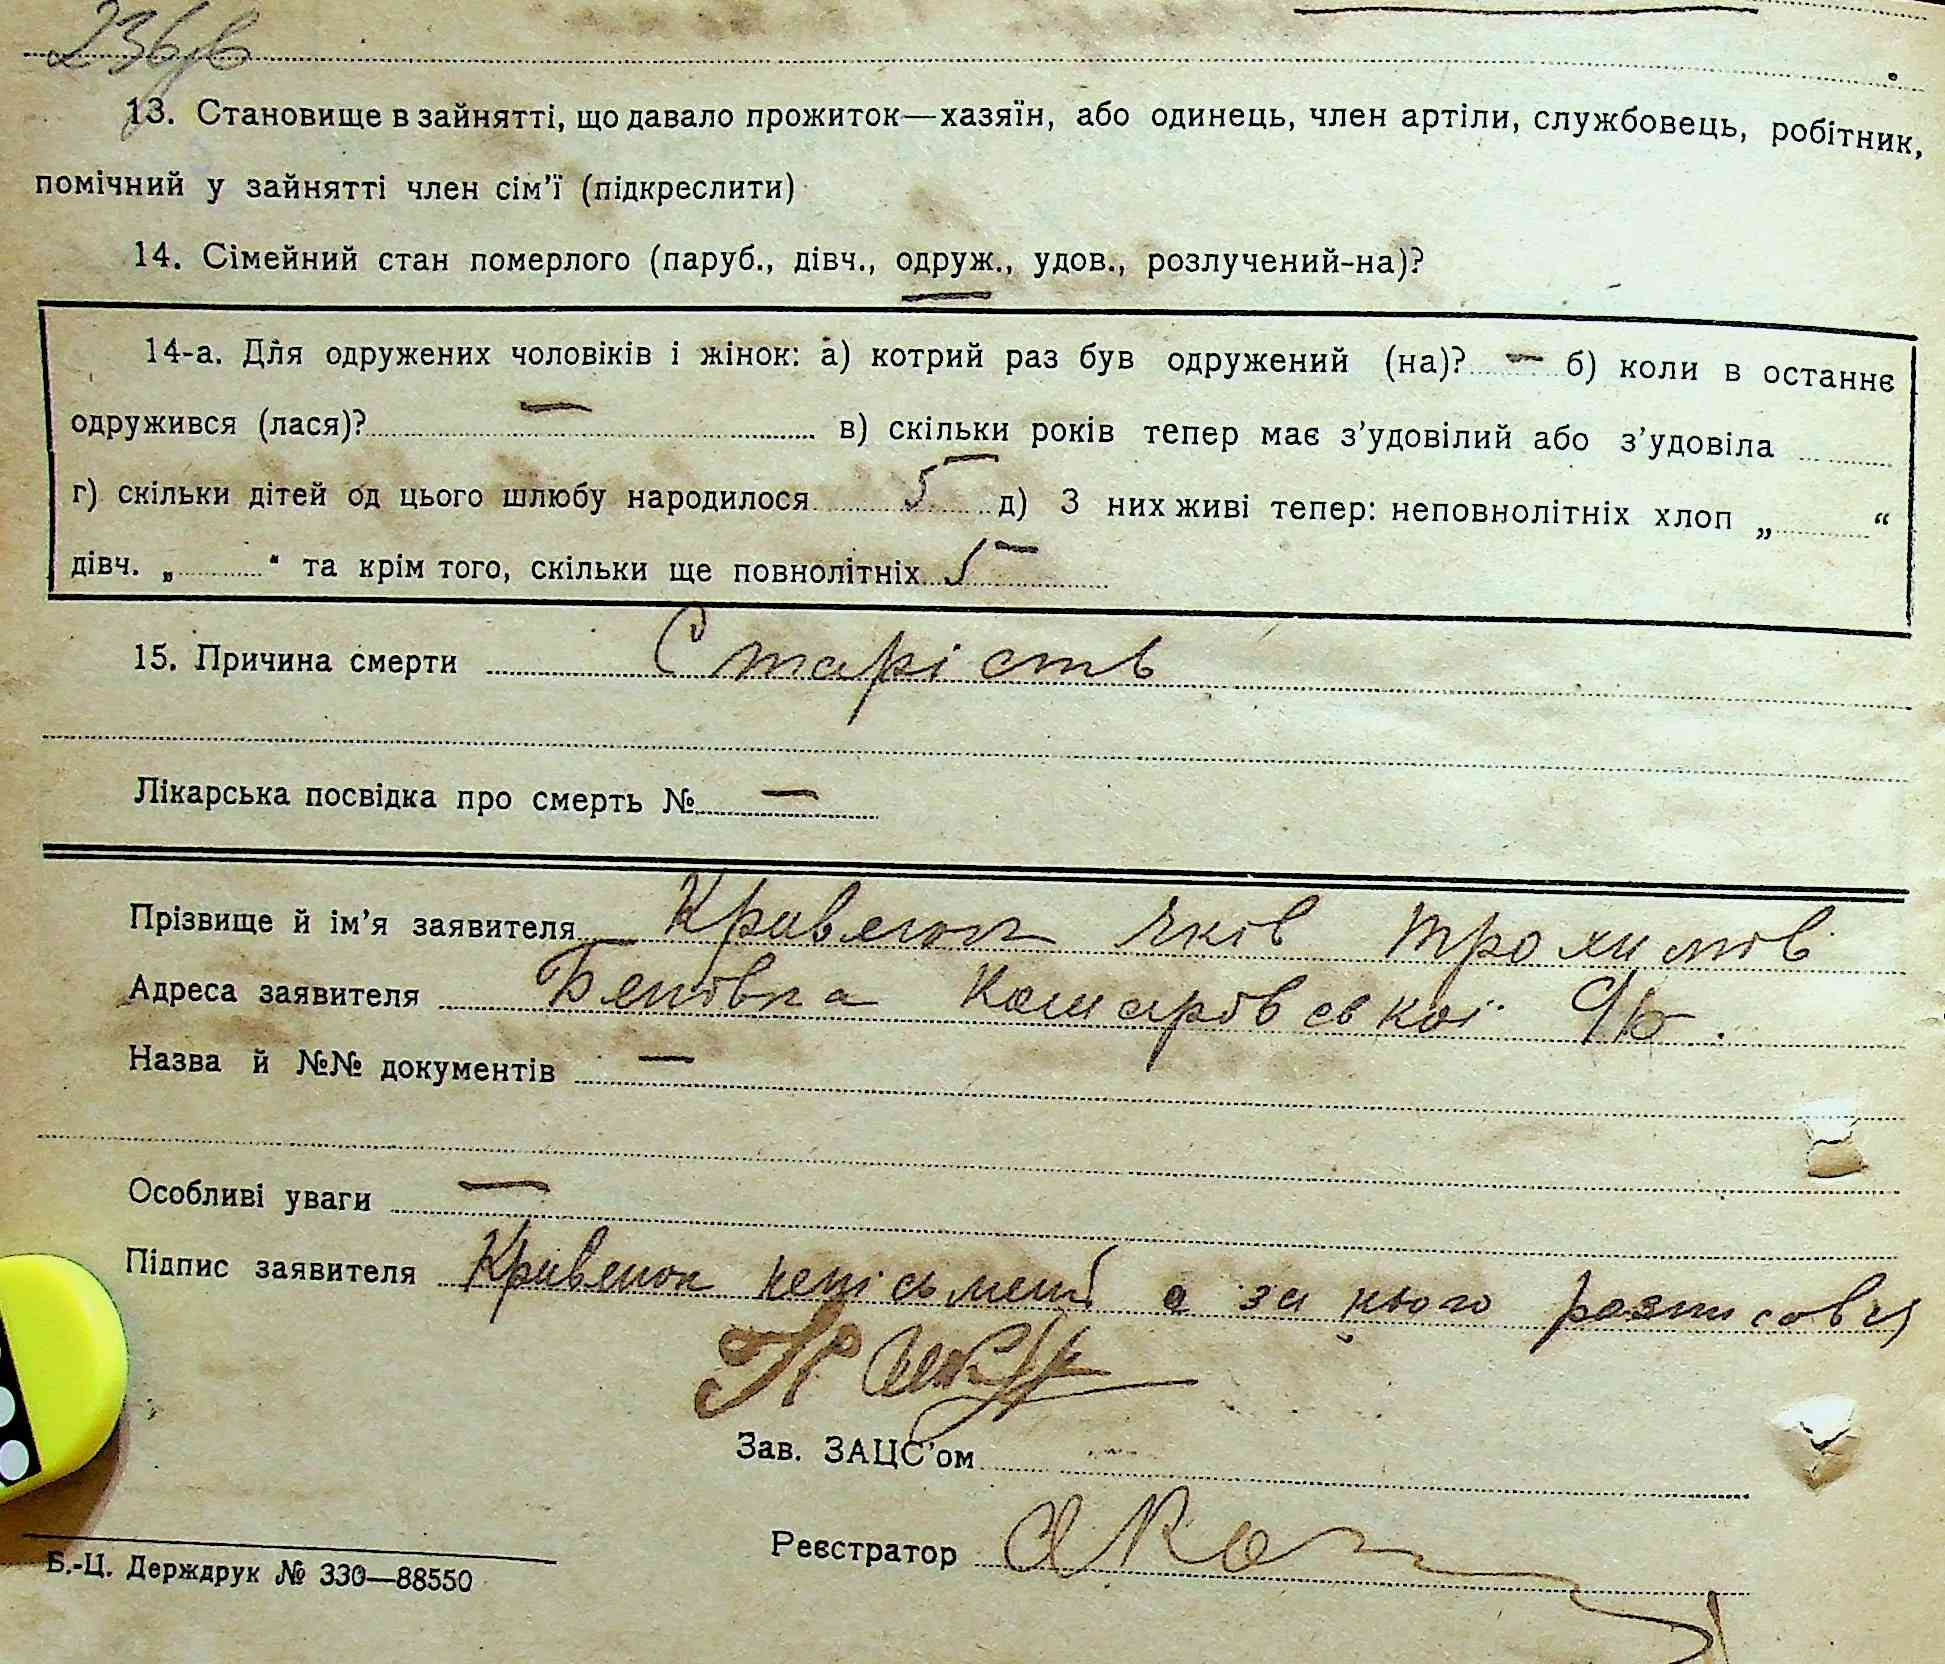 236/6
13. Становище в зайнятті, що давало прожиток—хазяїн, або одинець, член артіли, службовець, робітник,
помічний у зайнятті член сім’ї (підкреслити)
14. Сімейний стан померлого (паруб., дівч., одруж., удов., розлучений-на)?
14-а. Для одружених чоловіків і жінок: а) котрий раз був одружений (на)? — б) коли в останнє
одружився (лася)? — в) скільки років тепер має з’удовілий або з’удовіла
г) скільки дітей од цього шлюбу народилося 5 д) З них живі тепер: неповнолітніх хлоп „ “
дівч. „ “ та крім того, скільки ще повнолітніх 5
15. Причина смерти Старість
Лікарська посвідка про смерть № —
Прізвище й ім’я заявителя Кривенок Яків Трохимов
Адреса заявителя Кошаровської
Назва й №№ документів —
Особливі уваги —
Підпис заявителя Кривенок а за нього розписовся
Зав. ЗАЦС’ом
Реєстратор
Б.-Ц. Держдрук № 330—88550